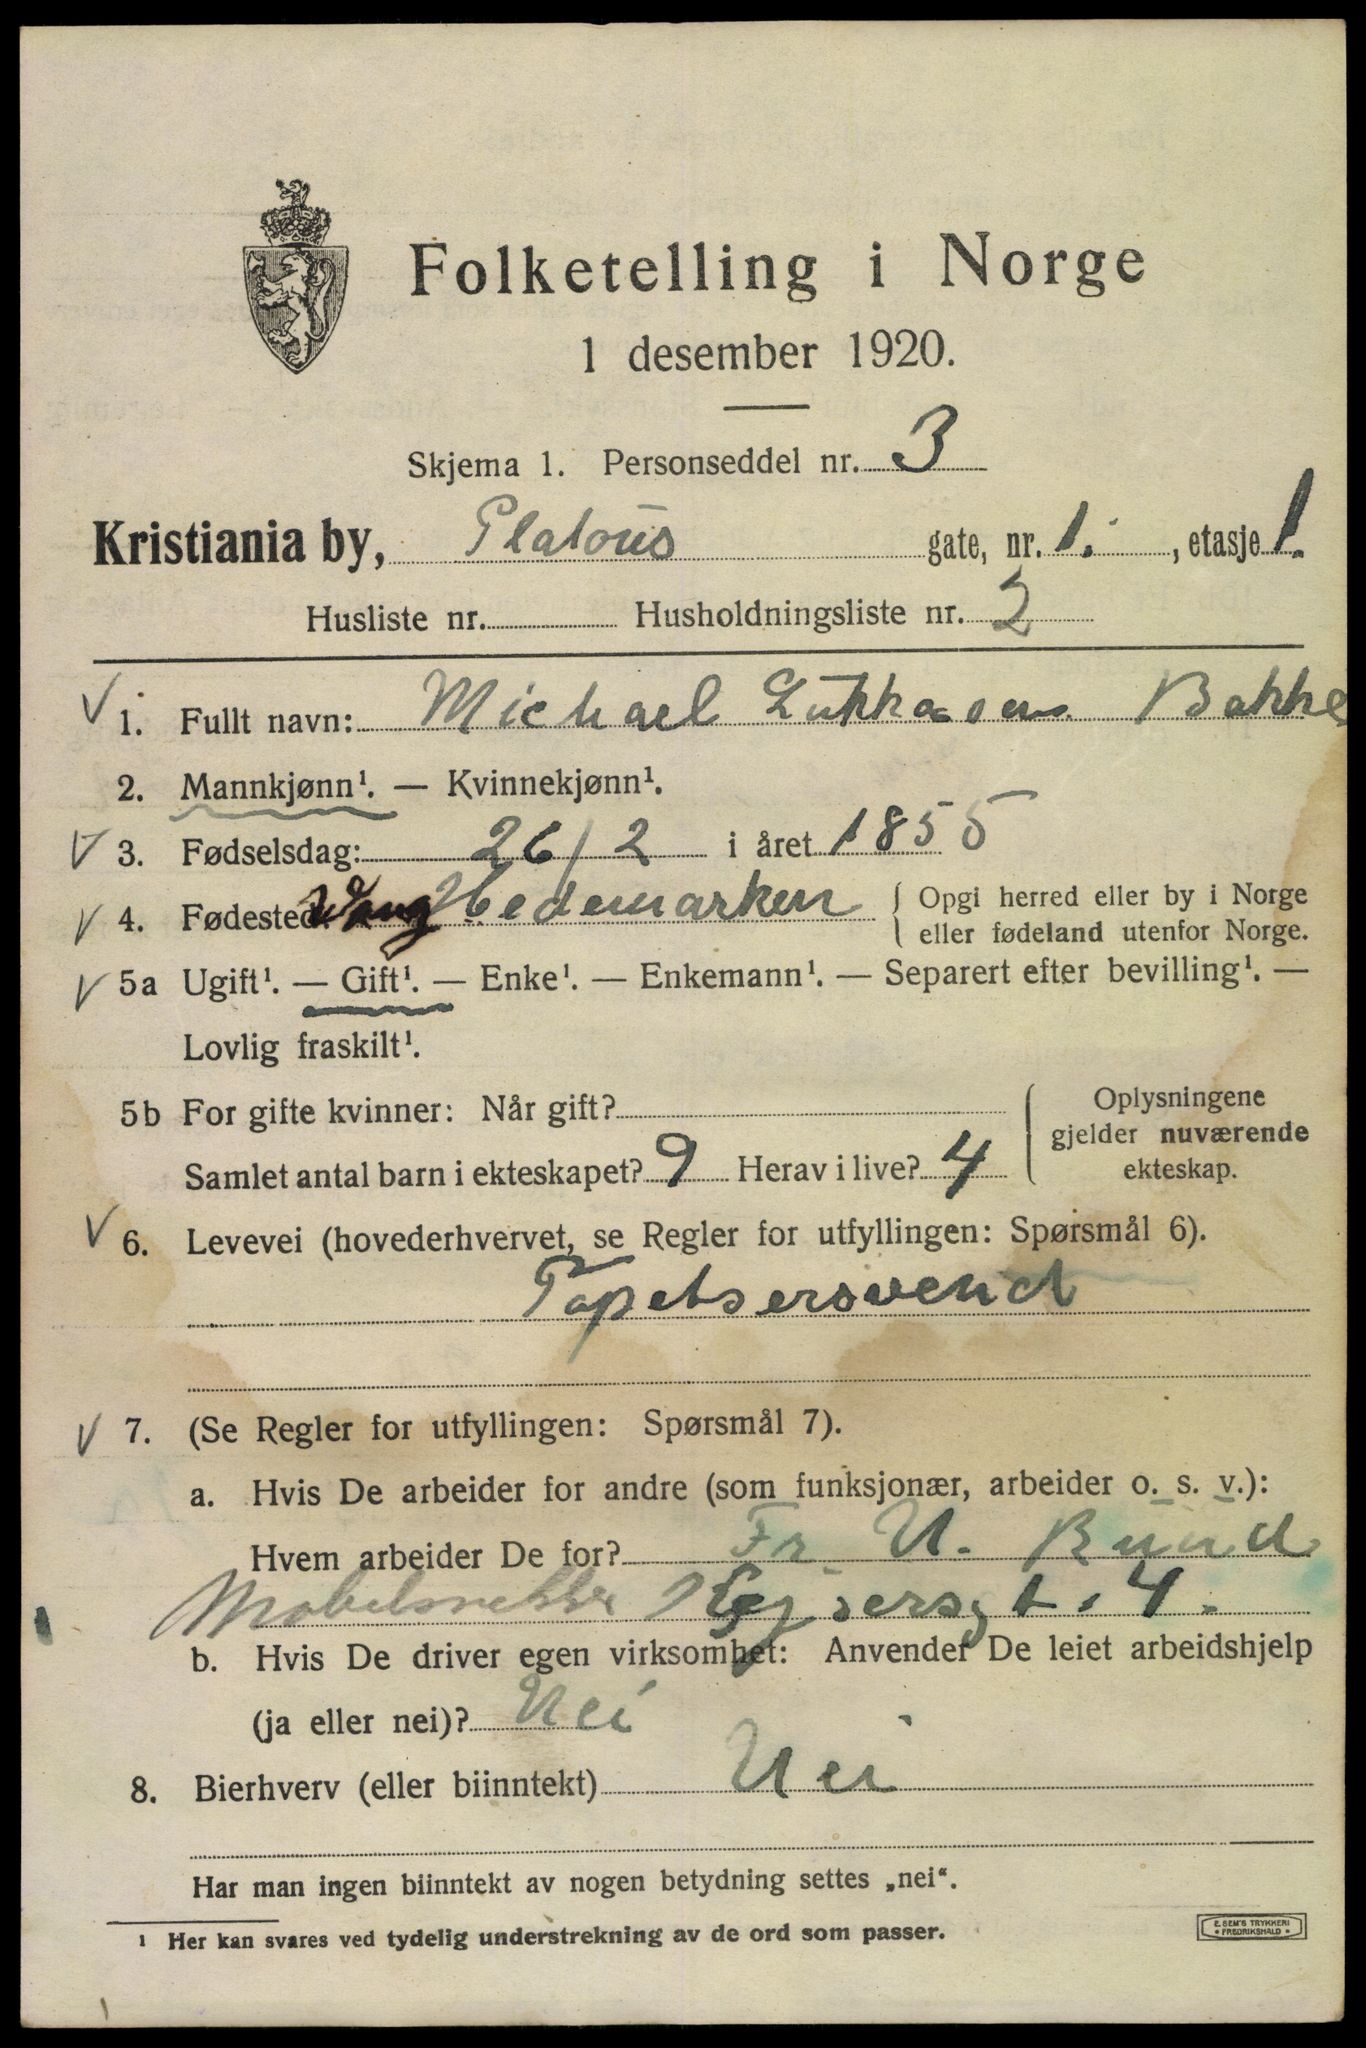 Folketelling i Norge
1 desember 1920.
Skjema 1. Personseddel nr. 3
Kristiania by, Platous gate, nr. 1. , etasje 1.
Husliste nr. Husholdningsliste nr. 2
1. Fullt navn: Michael Lukkasen Bakke
2. Mannkjønn¹. — Kvinnekjønn¹.
3. Fødselsdag: 26/2 i året 1855
4. Fødested: Vang Hedemarken { Opgi herred eller by i Norge
eller fødeland utenfor Norge.
5a Ugift¹. — Gift¹. — Enke¹. — Enkemann¹. — Separert efter bevilling¹. —
Lovlig fraskilt¹.
5b For gifte kvinner: Når gift?
Samlet antal barn i ekteskapet? 9 Herav i live? 4
Oplysningene
gjelder nuværende
ekteskap.
6. Levevei (hovederhvervet, se Regler for utfyllingen: Spørsmål 6).
Tapetsersvend
7. (Se Regler for utfyllingen: Spørsmål 7).
a. Hvis De arbeider for andre (som funksjonær, arbeider o. s. v.):
Hvem arbeider De for? Fr. U. Bund
Kejsersgt. 4.
b. Hvis De driver egen virksomhet: Anvender De leiet arbeidshjelp
(ja eller nei)? Nei
8. Bierhverv (eller biinntekt) Nei
Har man ingen biinntekt av nogen betydning settes „nei“.
¹ Her kan svares ved tydelig understrekning av de ord som passer.
E. SEM'S TRYKKERI
• FREDRIKSHALD •